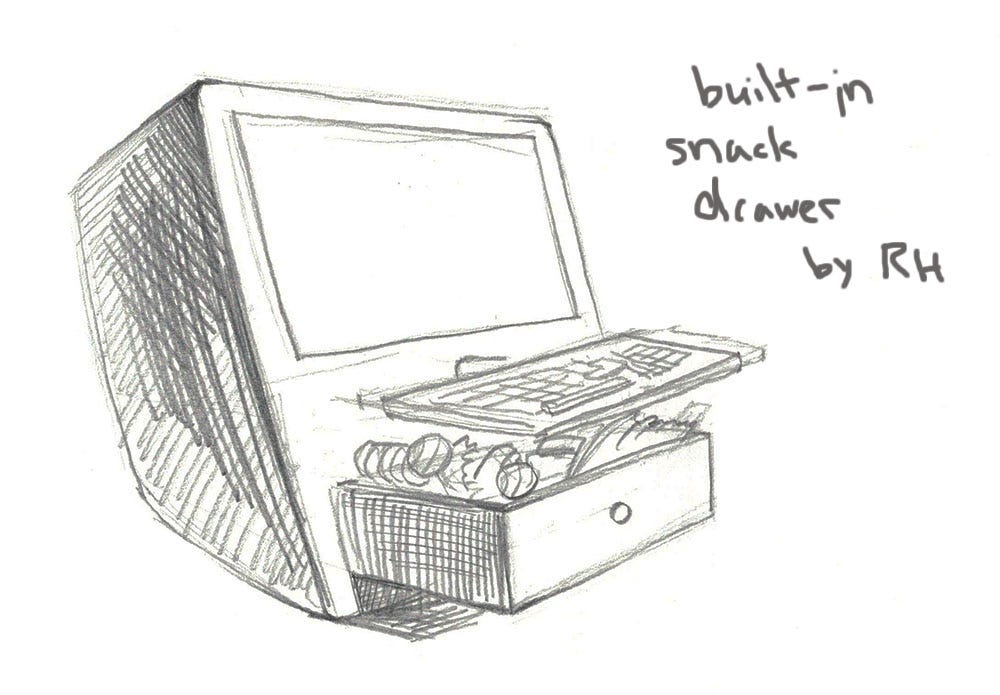 built-in
snack
drawer
by RH